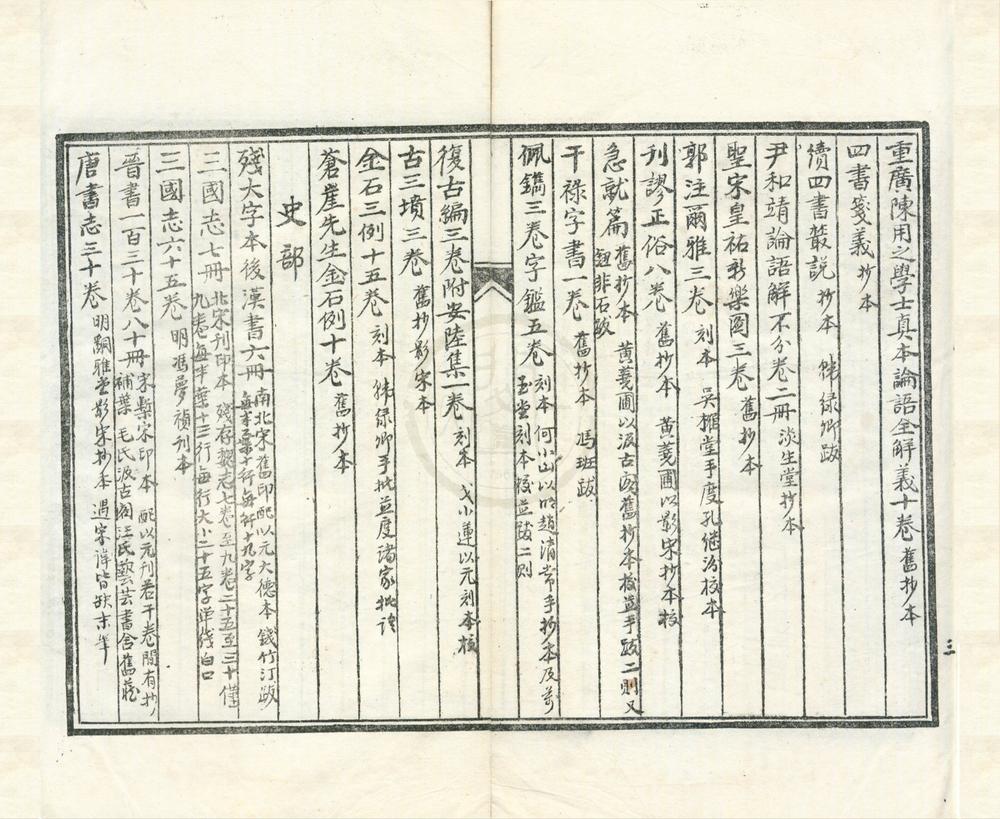 重廣陳用之學士真本論語全解義十卷 舊抄本
四書箋義 抄本
續四書叢說 抄本 韓綠卿跋
尹和靖論語解不分卷二冊 淡生堂抄本
聖宋皇祐新樂圖三卷 舊抄本
郭注爾雅三卷 刻本 吳櫂堂手度孔繼汾校本
刊謬正俗八卷 舊抄本 黃蕘圃以影宋抄本校
急就篇 舊抄本 黃蕘圃以汲古閣舊抄本校並手跋二則又
鈕非石跋
干祿字書一卷 舊抄本 馮班跋
佩觿三卷字鑑五卷 刻本 何小山以明趙清常手抄本及萬
玉堂刻本校並跋二則
復古編三卷附安陸集一卷 刻本 戈小蓮以元刻本校
古三墳三卷 舊抄影宋本
金石三例十五卷 刻本 韓綠卿手批並度諸家批語
蒼崖先生金石例十卷 舊抄本
史部
殘大字本後漢書六冊 南北宋舊印配以元大德本 錢竹汀跋
每半葉十行每行十九字
三國志七冊 北宋刊印本 殘存魏志七卷至九卷二十五至三十僅
九卷每半葉十三行每行大小二十五字單邊白口
三國志六十五卷 明馮夢禎刊本
晉書一百三十卷八十冊 宋槧宋印本 配以元刊若干卷間有抄
補葉 毛氏汲古閣汪氏藝芸書舍舊藏
唐書志三十卷 明嗣雅堂影宋抄本 遇宋諱皆缺末筆
三